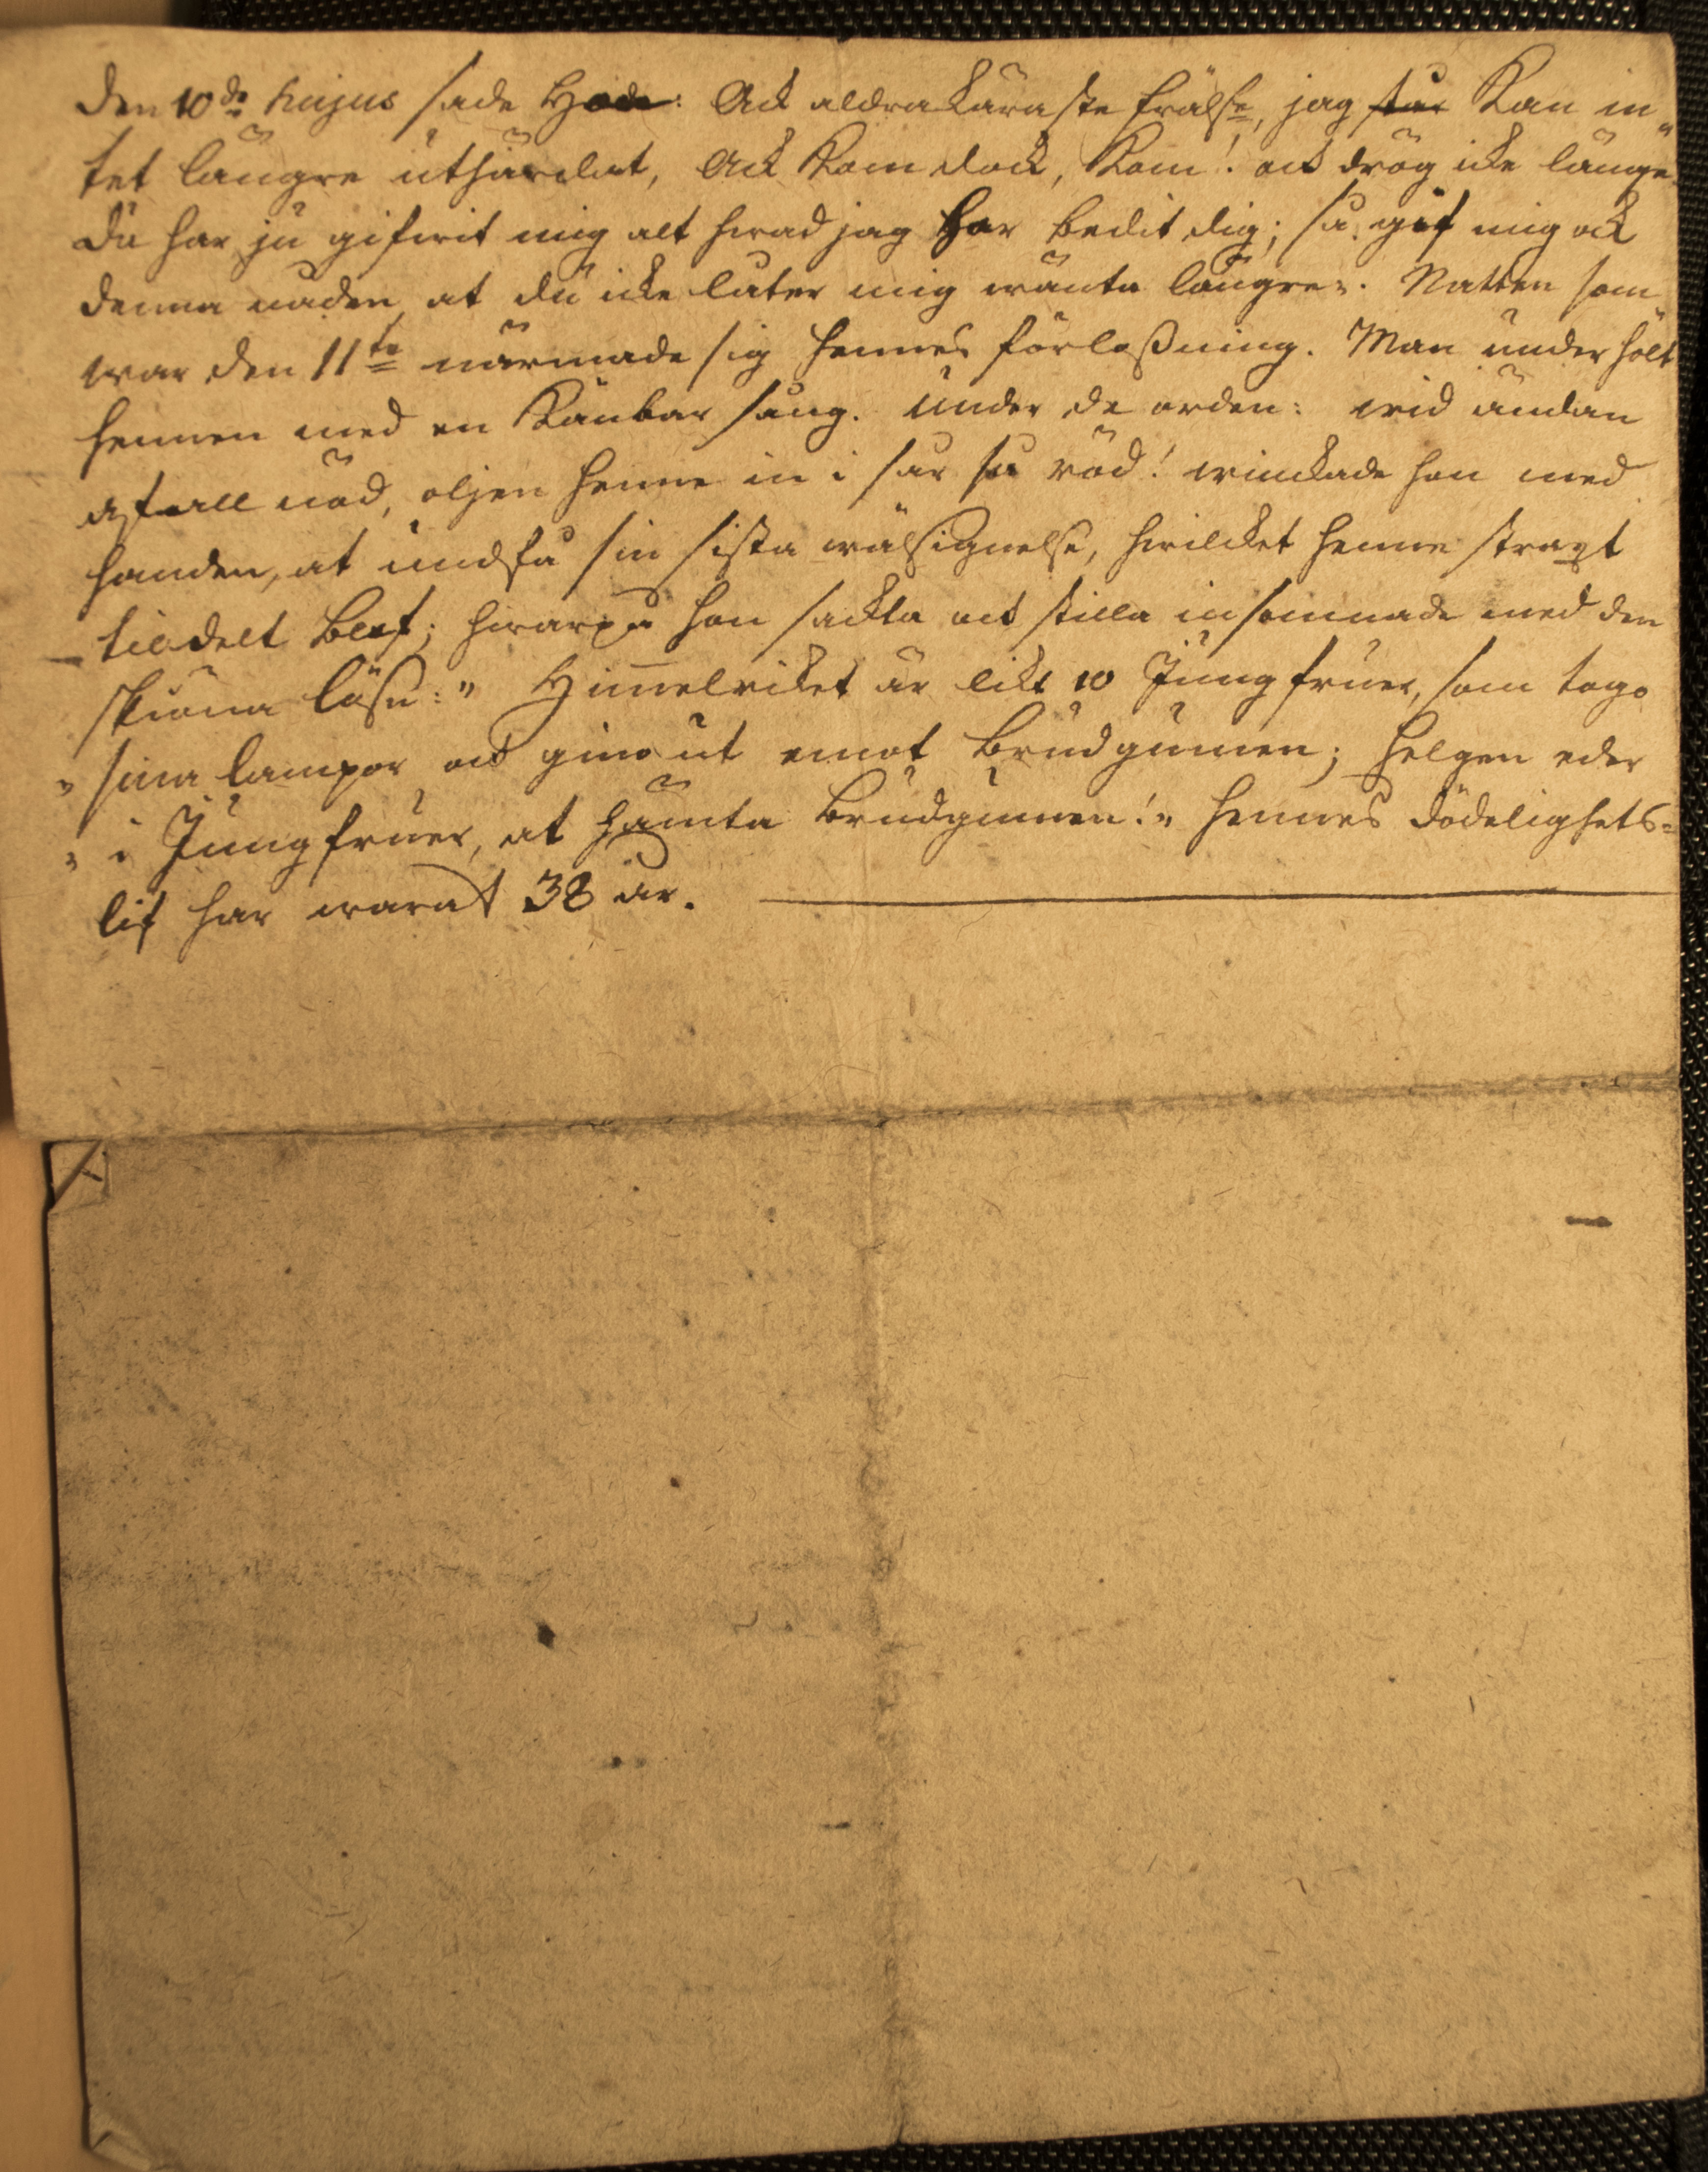 Den 10de hujus sade Hon: Ack aldrakäraste frälse, jag får kan in„
tet längre uthärdat, Ack kom dock, kom! ack drög icke länge.
du har ju gifwit mig alt hwad jag har bedit dig; så gif mig ock
denna nåden, at du icke låter mig wänta längre. Natten som
war den 11te närmade sig hennes förloßning. Man underhölt
hennen med en känbar sång. Under de orden: wid ändan
af all nöd, öljen henne in i sår så röd! winckade hon med
handen, at undfå sin sista wälsignelse, hwilcket henne straxt
tildelt blef; hwarpå hon sackta ock stilla insomnade med den
sköna lösn: „ Him̅elriket är likt 10 Jungfruer, som togo
„ sina lampor ock gingo ut emot Brudgumen; helgen eder
„ i Jungfruer, at hämta Brudgumen!„ hennes dödelighets=
lif har warat 38 år.